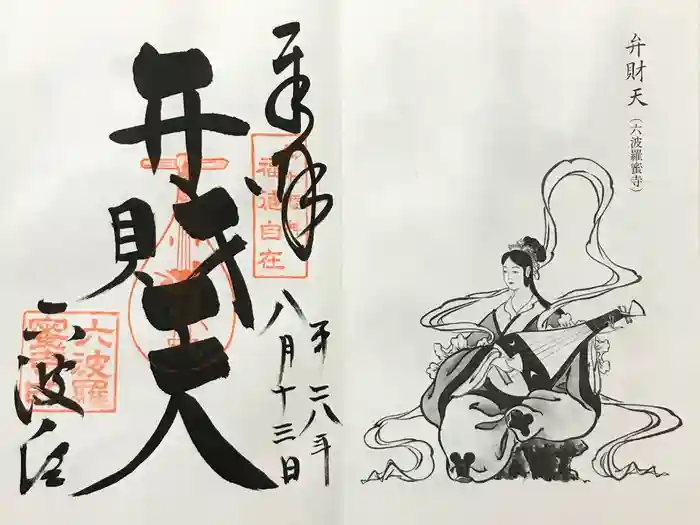 弁財天
(六波羅蜜寺)
奉拝
平二八年
八月十三日
弁財天
福徳自在
六波羅
蜜寺
六波羅